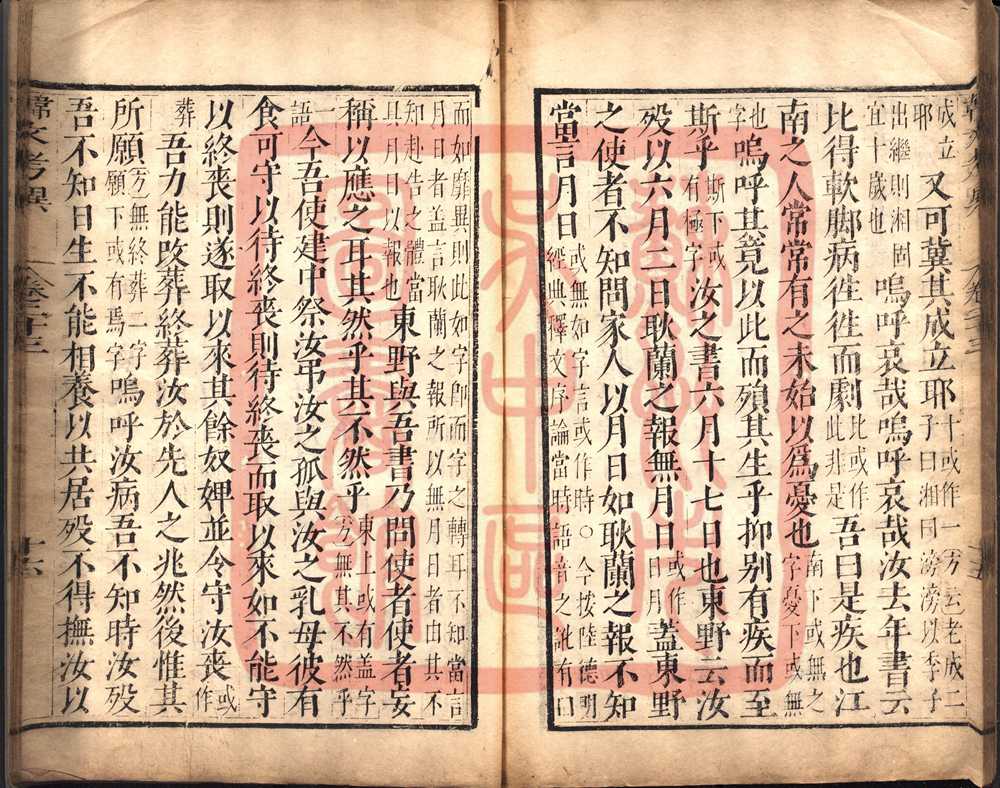 成立 又可冀其成立耶 十或作一方云老成二
耶 子曰湘曰滂滂以季子
出繼則湘固
宜十歲也 嗚呼哀哉嗚呼哀哉汝去年書云
比得軟脚病往往而劇 比或作
此非是 吾曰是疾也江
南之人常常有之未始以爲憂也 南下或無之
字憂下或無
也
字 嗚呼其竟以此而殞其生乎抑别有疾而至
斯乎 斯下或
有極字 汝之書六月十七日也東野云汝
殁以六月二日耿蘭之報無月日 或作
日月 蓋東野
之使者不知問家人以月日如耿蘭之報不知
當言月日 或無如字言或作時〇今按陸德明
經典釋文序論當時語音之訛有曰
而如靡異則此如字卽而字之轉耳不知當言
月日者蓋言耿蘭之報所以無月日者由其不
知赴告之體當
具月日以報也 東野與吾書乃問使者使者妄
稱以應之耳其然乎其不然乎 東上或有蓋字
方無其不然乎
一
語 今吾使建中祭汝弔汝之孤與汝之乳母彼有
食可守以待終喪則待終喪而取以來如不能守
以終喪則遂取以來其餘奴婢並令守汝喪 或
作
葬 吾力能改葬終葬汝於先人之兆然後惟其
所願 方無終葬二字
願下或有焉字 嗚呼汝病吾不知時汝殁
吾不知日生不能相養以共居殁不得撫汝以
韓文考異 卷二十三 十六